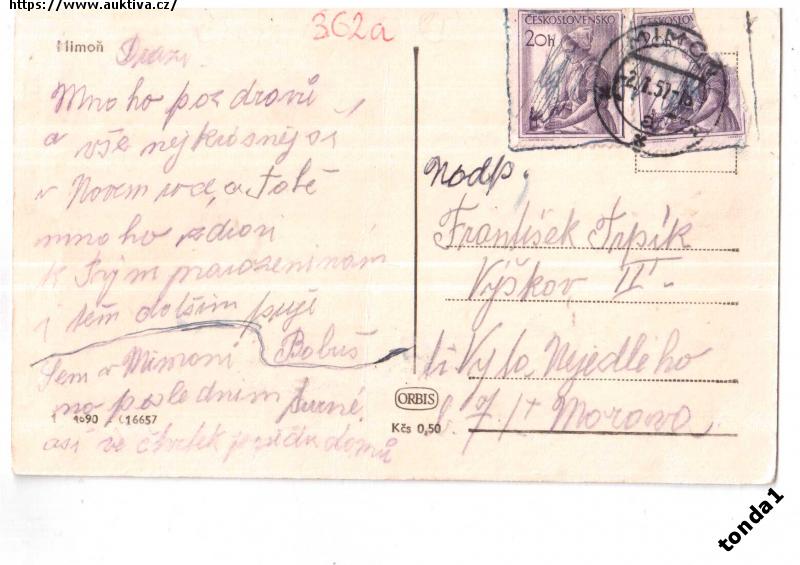 https://www.auktiva.cz/
362a
Mimoň
Drazí
Mnoho pozdravů
a vše nejkrásnější
v Novém roce, a Tobě
mnoho zdraví
k Tvým narozeninám
i těm dalším přeje
Bobuš
Jsem v Mimoni
na posledním turné
asi ve čtvrtek přijedu domů
1690 - 016657
ORBIS
Kčs 0,50
ČESKOSLOVENSKO
20H
ČESKOSLOV
MIMOŇ
Nodp.
František Trpík
Výškov II.
ul Nejedlého
č. 7/
Morava
tonda1